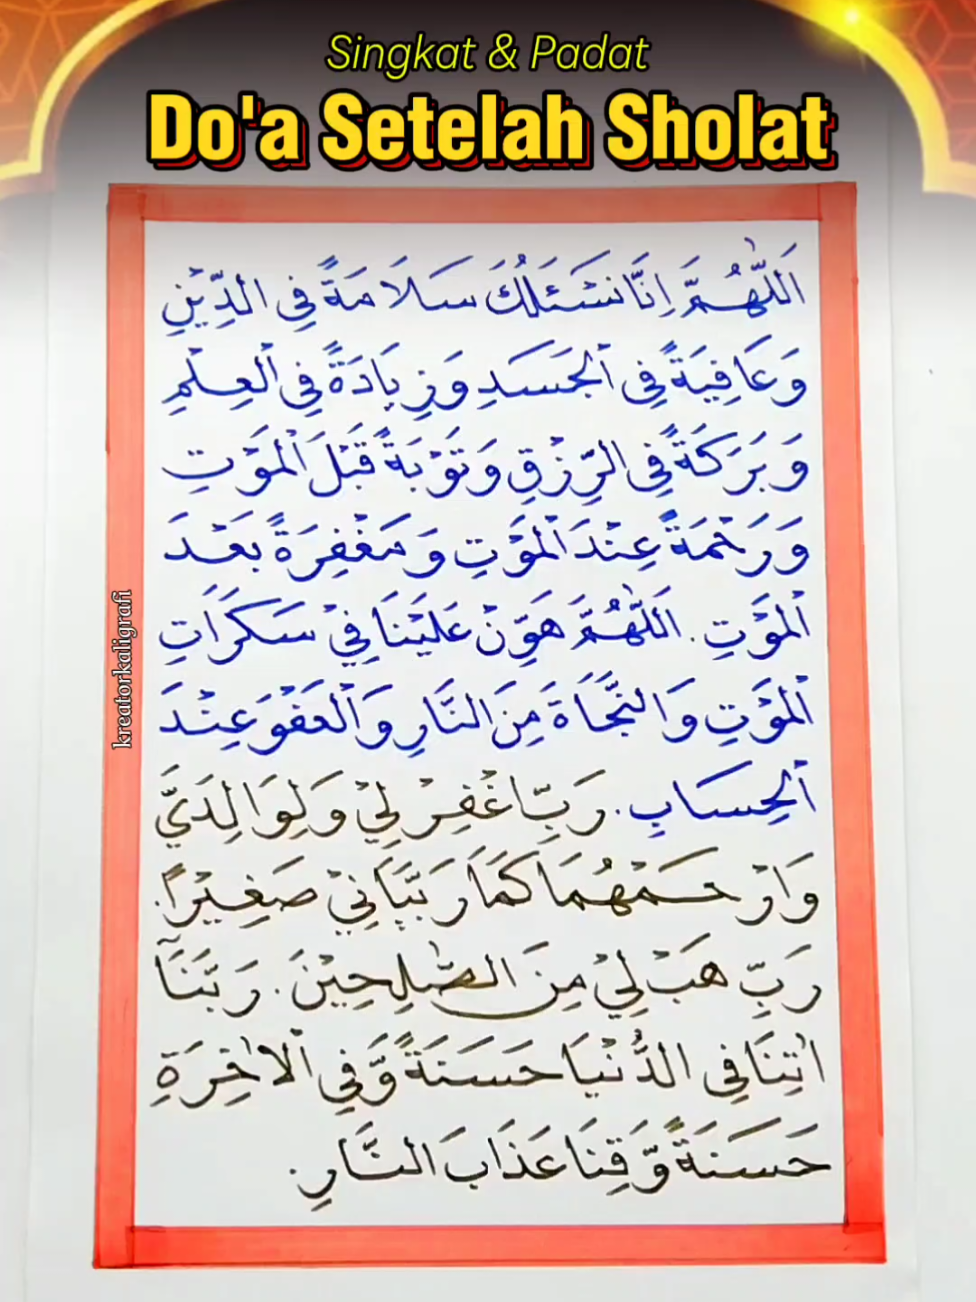 Singkat & Padat
Do'a Setelah Sholat
اَللّٰهُمَّ اِنَّا نَسْئَلُكَ سَلَامَةً فِى الدِّيْنِ
وَعَافِيَةً فِى الْجَسَدِ وَزِيَادَةً فِى الْعِلْمِ
وَبَرَكَةً فِى الرِّزْقِ وَتَوْبَةً قَبْلَ الْمَوْتِ
وَرَحْمَةً عِنْدَ الْمَوْتِ وَمَغْفِرَةً بَعْدَ
الْمَوْتِ. اَللّٰهُمَّ هَوِّنْ عَلَيْنَا فِيْ سَكَرَاتِ
الْمَوْتِ وَالنَّجَاةَ مِنَ النَّارِ وَالْعَفْوَ عِنْدَ
الْحِسَابِ. رَبِّ اغْفِرْ لِيْ وَلِوَالِدَيَّ
وَارْحَمْهُمَا كَمَا رَبَّيَانِيْ صَغِيْرًا.
رَبِّ هَبْ لِيْ مِنَ الصّٰلِحِيْنَ. رَبَّنَآ
اٰتِنَا فِى الدُّنْيَا حَسَنَةً وَّفِى الْاٰخِرَةِ
حَسَنَةً وَّقِنَا عَذَابَ النَّارِ.
kreatorkaligrafi